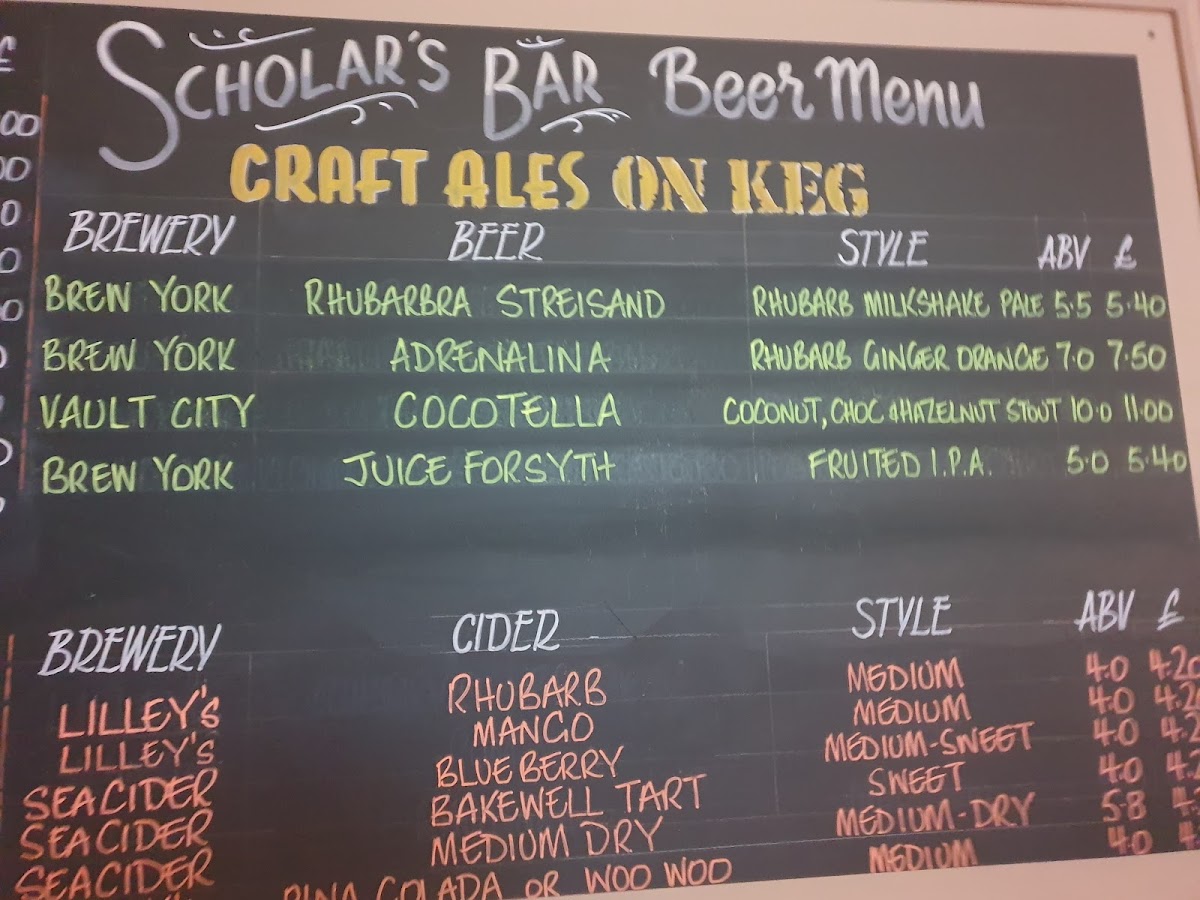 SCHOLAR'S BAR Beer Menu
CRAFT ALES ON KEG
BREWERY BEER STYLE ABV £
BREW YORK RHUBARBRA STREISAND RHUBARB MILKSHAKE PALE 5.5 5.40
BREW YORK ADRENALINA RHUBARB GINGER ORANGE 7.0 7.50
VAULT CITY COCOTELLA COCONUT, CHOC & HAZELNUT STOUT 10.0 11.00
BREW YORK JUICE FORSYTH FRUITED I.P.A. 5.0 5.40
BREWERY CIDER STYLE ABV £
LILLEY'S RHUBARB MEDIUM 4.0 4.20
LILLEY'S MANGO MEDIUM 4.0
SEACIDER BLUEBERRY MEDIUM-SWEET 4.0
SEACIDER BAKEWELL TART SWEET 4.0
SEACIDER MEDIUM DRY MEDIUM-DRY 5.8
PINA COLADA OR WOO WOO MEDIUM 4.0